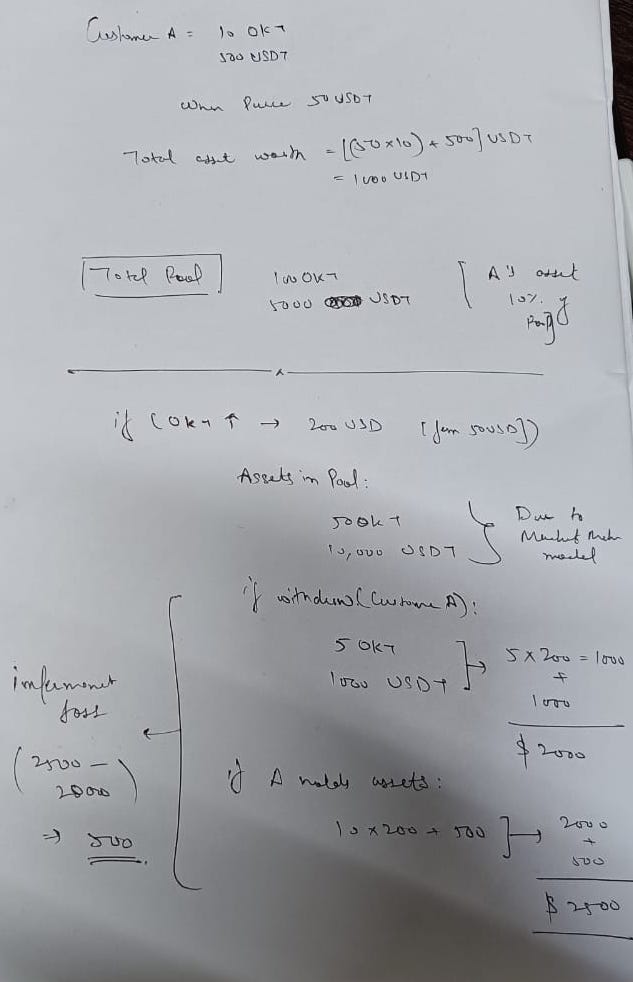 Customer A = 10 OKT
500 USDT
When Price 50 USDT
Total asset worth = [(50 x 10) + 500] USDT
= 1000 USDT
Total Pool
100 OKT
5000 USDT
[ A's asset
10% of
Pool ]
if (OKT ↑ → 200 USD [from 50USD])
Assets in Pool:
50 OKT
10,000 USDT
Due to
Market Maker
model
if withdraw (Customer A):
5 OKT
1000 USDT
→ 5 x 200 = 1000
+
1000
$ 2000
if A holds assets:
10 x 200 + 500 ] → 2000
+
500
$ 2500
impermanent
loss
(2500 -
2000)
⇒ 500.